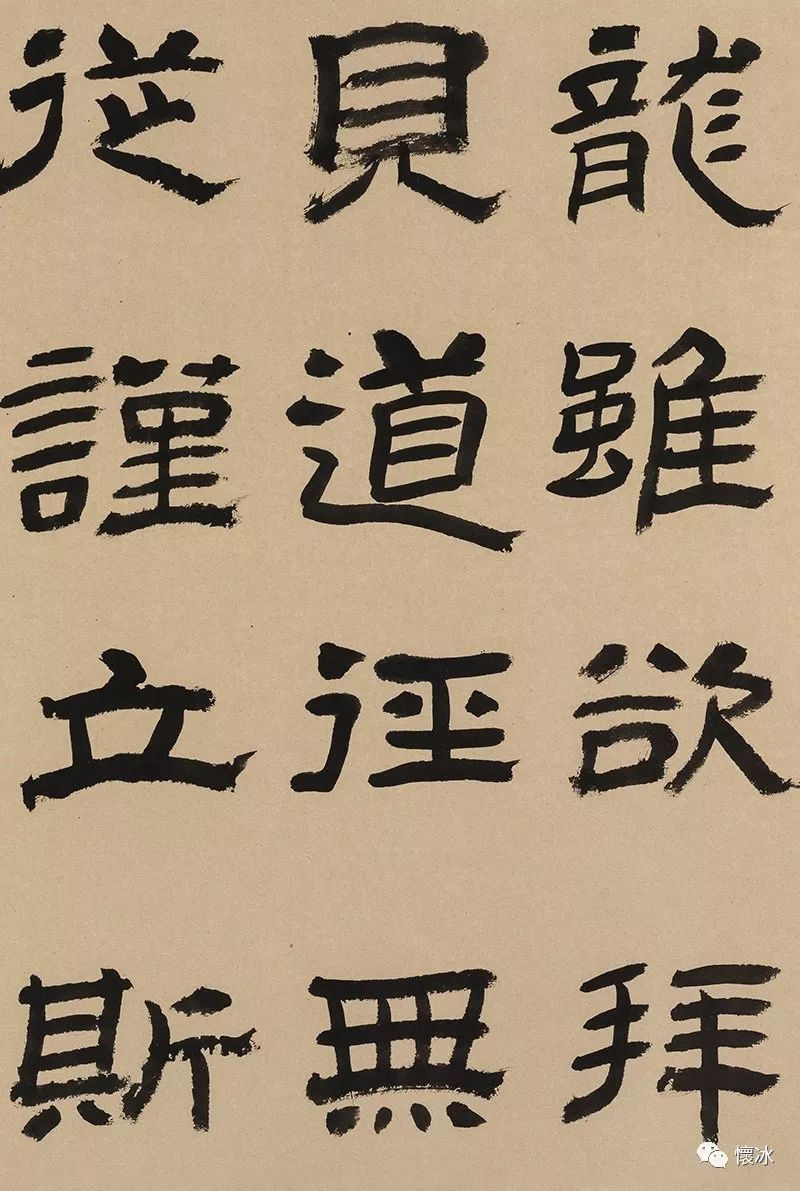 龍雖欲拜
見道徑無
從謹立斯
懷冰